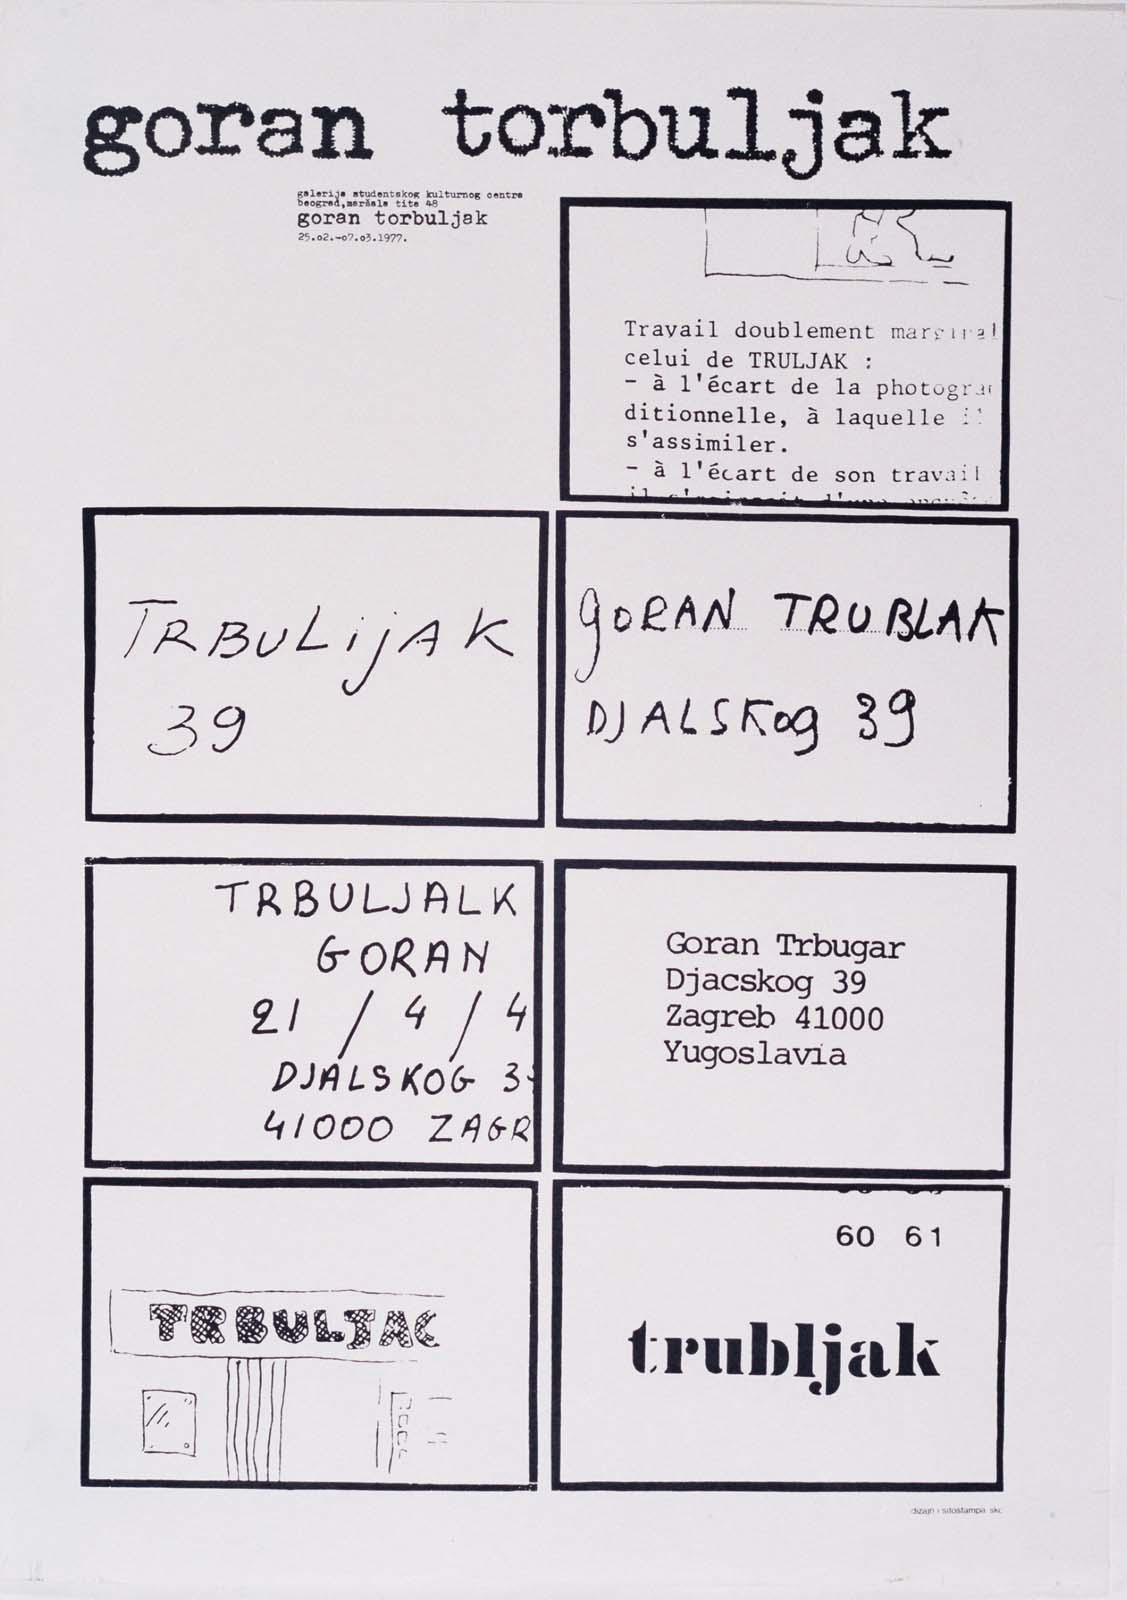 goran torbuljak
galerija studentskog kulturnog centra
beograd,maršala tita 48
goran torbuljak
25.o2.-o7.o3.1977.
Travail doublement marginal
celui de TRULJAK :
- à l'écart de la
ditionnelle, à laquelle
s'assimiler.
- à l'écart de son travail
TRBULijAK
39
goRAN TRUBLAK
DJALSKog 39
TRBULJALK
GORAN
21 / 4 / 4
DJALSKOG 3
41000 ZAGR
Goran Trbugar
Djacskog 39
Zagreb 41000
Yugoslavia
TRBULJAC
60 61
trubljak
dizajn i sitoštampa skc